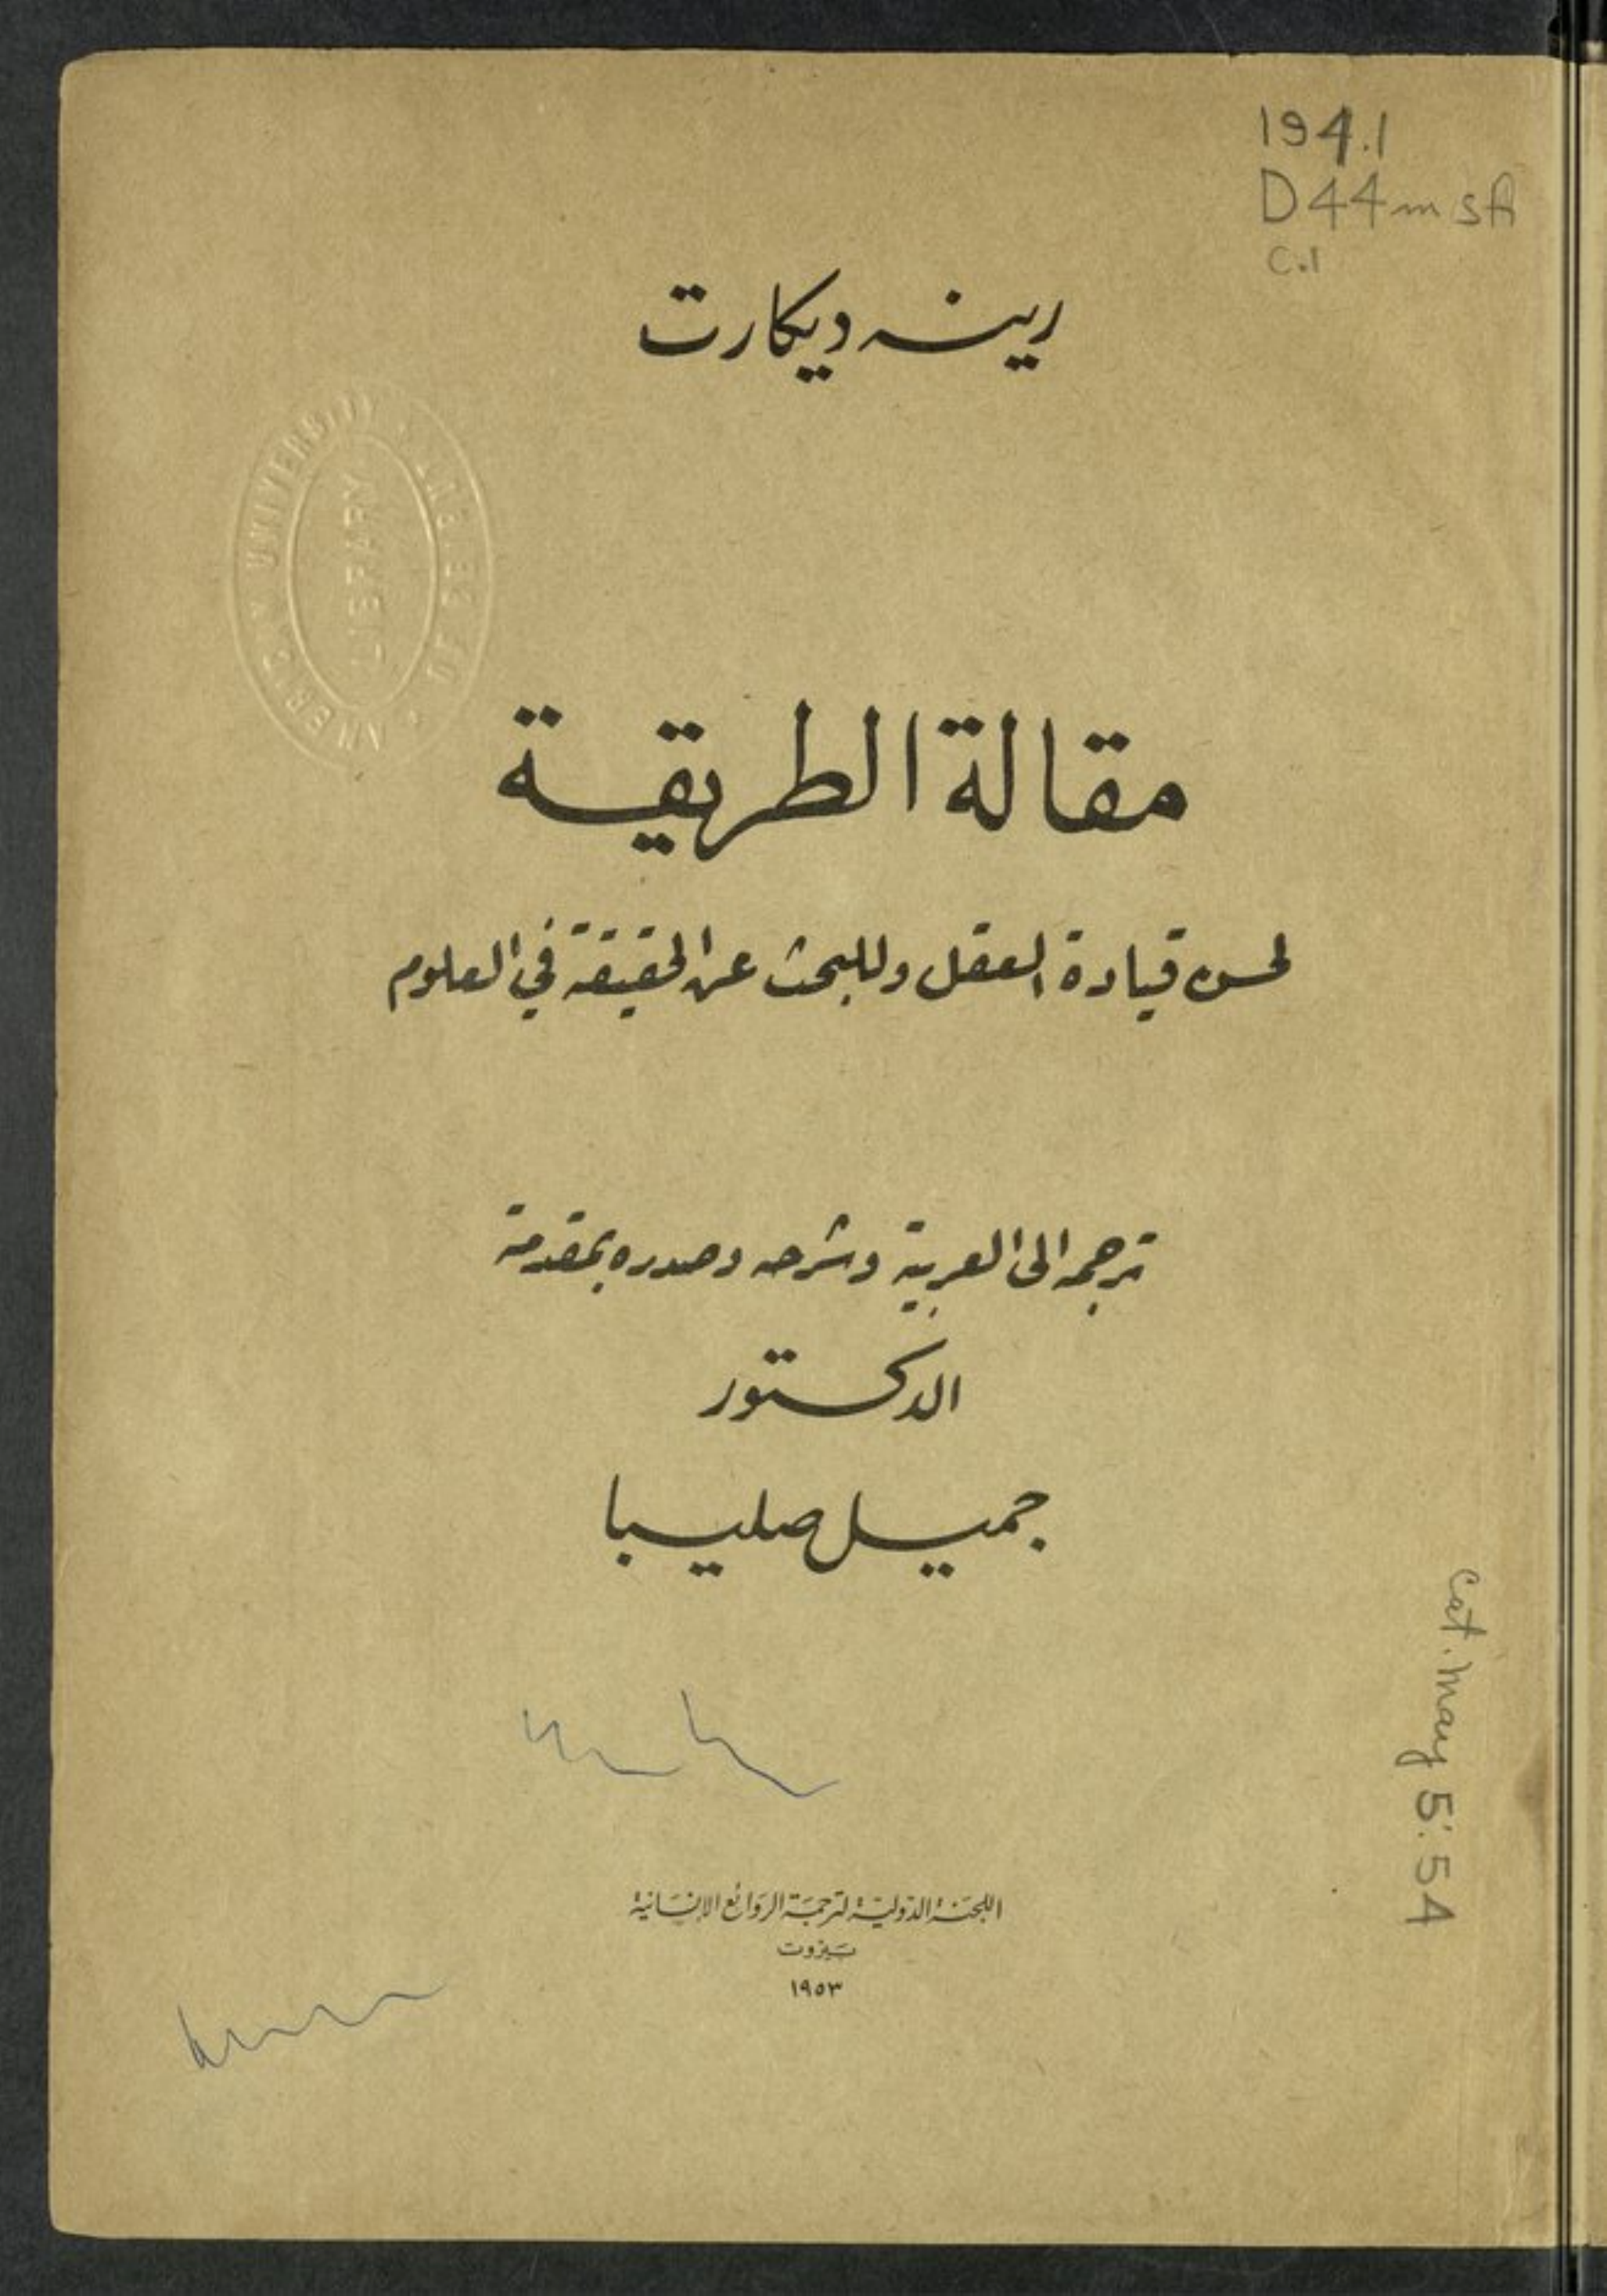 194.1
D44msA
C.1
رينه ديكارت
AMERICAN UNIVERSITY OF BEIRUT
LIBRARY
مقالة الطريقة
لحسن قيادة العقل وللبحث عن الحقيقة في العلوم
ترجمه الى العربية وشرحه وصدره بمقدمة
الدكتور
جميل صليبا
cat. May 5: 54
اللجنة الدولية لترجمة الروائع الانسانية
بيروت
١٩٥٣